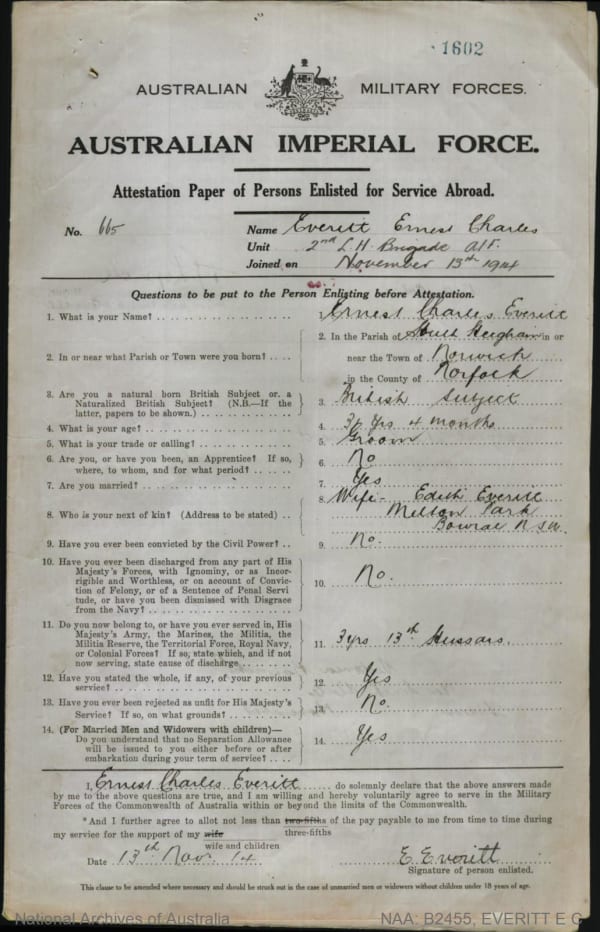 1602
AUSTRALIAN MILITARY FORCES.
AUSTRALIAN IMPERIAL FORCE.
Attestation Paper of Persons Enlisted for Service Abroad.
No. 665 Name Everitt Ernest Charles
Unit 2nd L.H. Brigade AIF.
Joined on November 13th 1914
Questions to be put to the Person Enlisting before Attestation.
1. What is your Name? 1. Ernest Charles Everitt
2. In or near what Parish or Town were you born? 2. In the Parish of South Heigham in or
near the Town of Norwich
in the County of Norfock
3. Are you a natural born British Subject or a
Naturalized British Subject? (N.B.—If the
latter, papers to be shown.) 3. British Subject
4. What is your age? 4. Yrs 4 months
5. What is your trade or calling? 5. Groom
6. Are you, or have you been, an Apprentice? If so,
where, to whom, and for what period? 6. No
7. Are you married? 7. Yes
8. Who is your next of kin? (Address to be stated) 8. Wife - Edith Everitt
Milton Park
Bowral N.S.W.
9. Have you ever been convicted by the Civil Power? 9. No.
10. Have you ever been discharged from any part of His
Majesty's Forces, with Ignominy, or as Incor-
rigible and Worthless, or on account of Convic-
tion of Felony, or of a Sentence of Penal Servi
tude, or have you been dismissed with Disgrace
from the Navy? 10. No.
11. Do you now belong to, or have you ever served in, His
Majesty's Army, the Marines, the Militia, the
Militia Reserve, the Territorial Force, Royal Navy,
or Colonial Forces? If so, state which, and if not
now serving, state cause of discharge 11. 3 yrs 13th Hussars.
12. Have you stated the whole, if any, of your previous
service? 12. Yes
13. Have you ever been rejected as unfit for His Majesty's
Service? If so, on what grounds? 13. No.
14. (For Married Men and Widowers with children)—
Do you understand that no Separation Allowance
will be issued to you either before or after
embarkation during your term of service? 14. Yes
I, Ernest Charles Everitt do solemnly declare that the above answers made
by me to the above questions are true, and I am willing and hereby voluntarily agree to serve in the Military
Forces of the Commonwealth of Australia within or beyond the limits of the Commonwealth.
*And I further agree to allot not less than two-fifths of the pay payable to me from time to time during
three-fifths
my service for the support of my wife
wife and children
Date 13th Nov. 14 E. Everitt
Signature of person enlisted.
This clause to be amended where necessary and should be struck out in the case of unmarried men or widowers without children under 18 years of age.
National Archives of Australia NAA: B2455, EVERITT E C